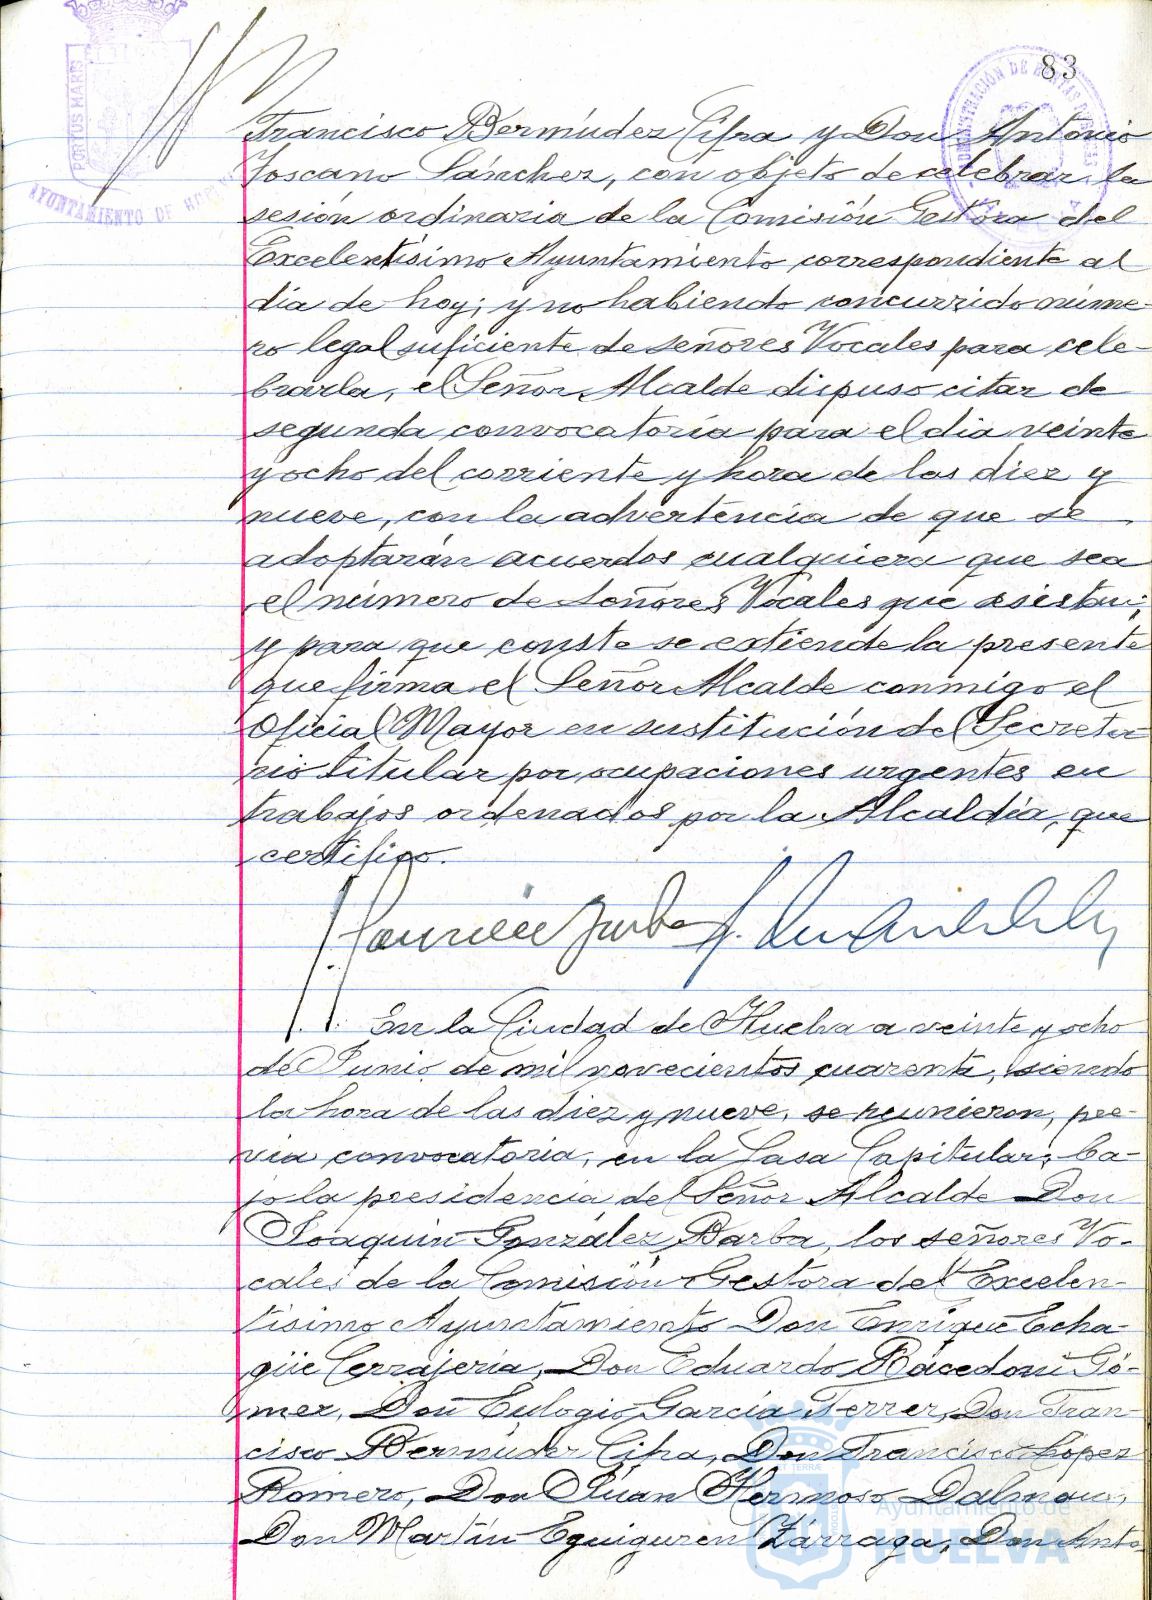 83
PORTUS MARIS
AYUNTAMIENTO DE HUELVA
ADMINISTRACIÓN DE RENTAS PÚBLICAS
Francisco Bermúdez Cifra y Don Antonio
Toscano Sánchez, con objeto de celebrar la
sesión ordinaria de la Comisión Gestora del
Excelentísimo Ayuntamiento correspondiente al
día de hoy; y no habiendo concurrido núme-
ro legal suficiente de señores Vocales para cele-
brarla, el Señor Alcalde dispuso citar de
segunda convocatoria para el día veinte
y ocho del corriente y hora de las diez y
nueve, con la advertencia de que se
adoptarán acuerdos cualquiera que sea
el número de Señores Vocales que asistan;
y para que conste se extiende la presente
que firma el Señor Alcalde conmigo el
Oficial Mayor en sustitución del Secreta-
rio titular por ocupaciones urgentes en
trabajos ordenados por la Alcaldía, que
certifico.
En la Ciudad de Huelva a veinte y ocho
de Junio de mil novecientos cuarenta, siendo
la hora de las diez y nueve, se reunieron, pre-
via convocatoria, en la Casa Capitular, ba-
jo la presidencia del Señor Alcalde Don
Joaquín González Barba, los señores Vo-
cales de la Comisión Gestora del Excelen-
tísimo Ayuntamiento Don Enrique Echa-
güe Cerrajería, Don Eduardo Rácedoni Gó-
mez, Don Eulogio García Ferrer, Don Fran-
cisco Bermúdez Cifra, Don Francisco López
Romero, Don Juan Hermoso Dalmau,
Don Martín Eguiguren Zárraga, Don Anto-
Ayuntamiento de
HUELVA